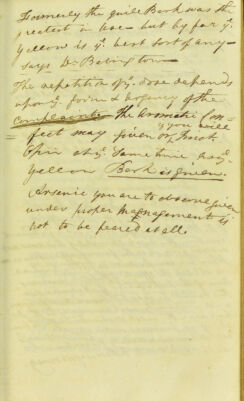 Formerly the quill Bark was the
greatest in use - but by far ye
yellow is ye best sort of any -
says Dr Babington -
The repetition of ye dose depends
upon ye form & urgency of the
Complaints the Aromatic Con=
fect may given or you will
at ye same time ye
yellow Bark is given.
Arsenic you are to observe given
under proper management is
not to be feared at all.